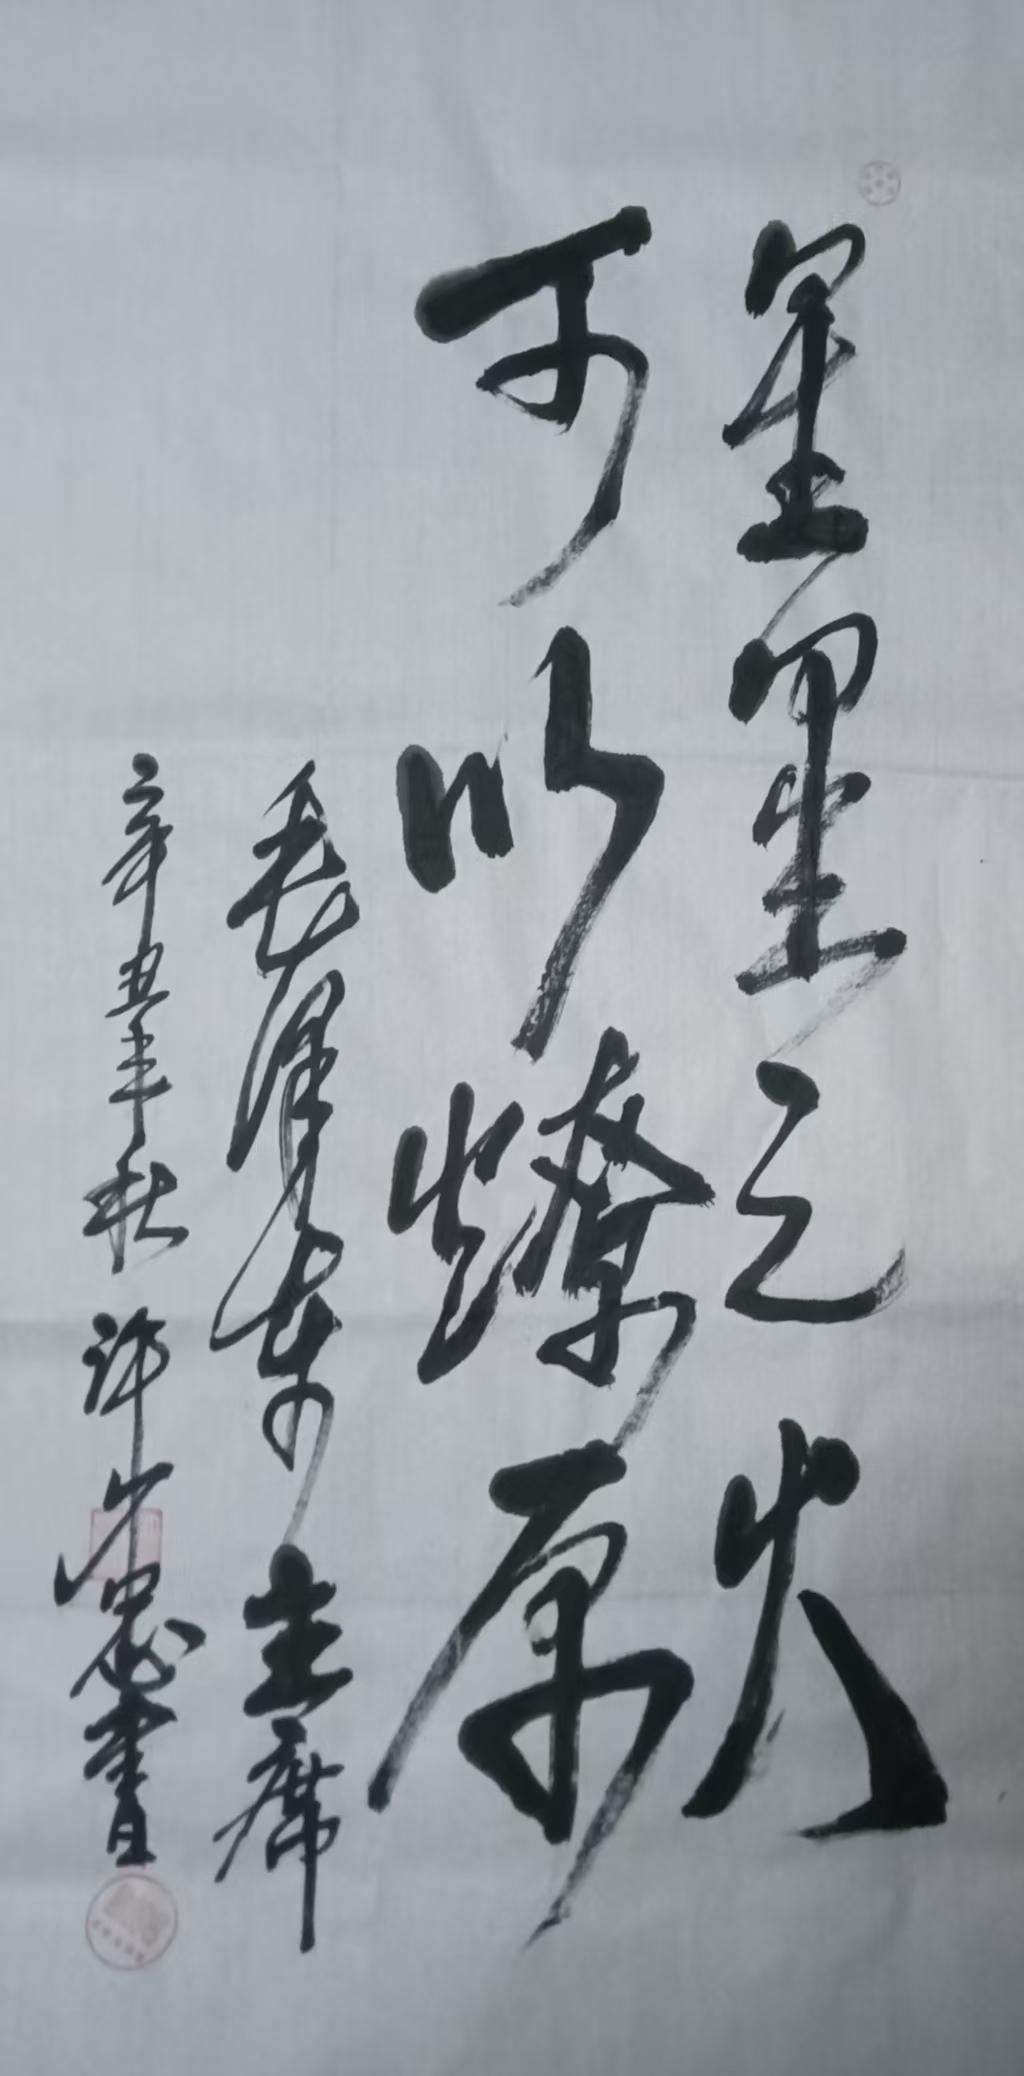 星星之火
可以燎原
毛泽东主席
辛丑年秋 许少忠书